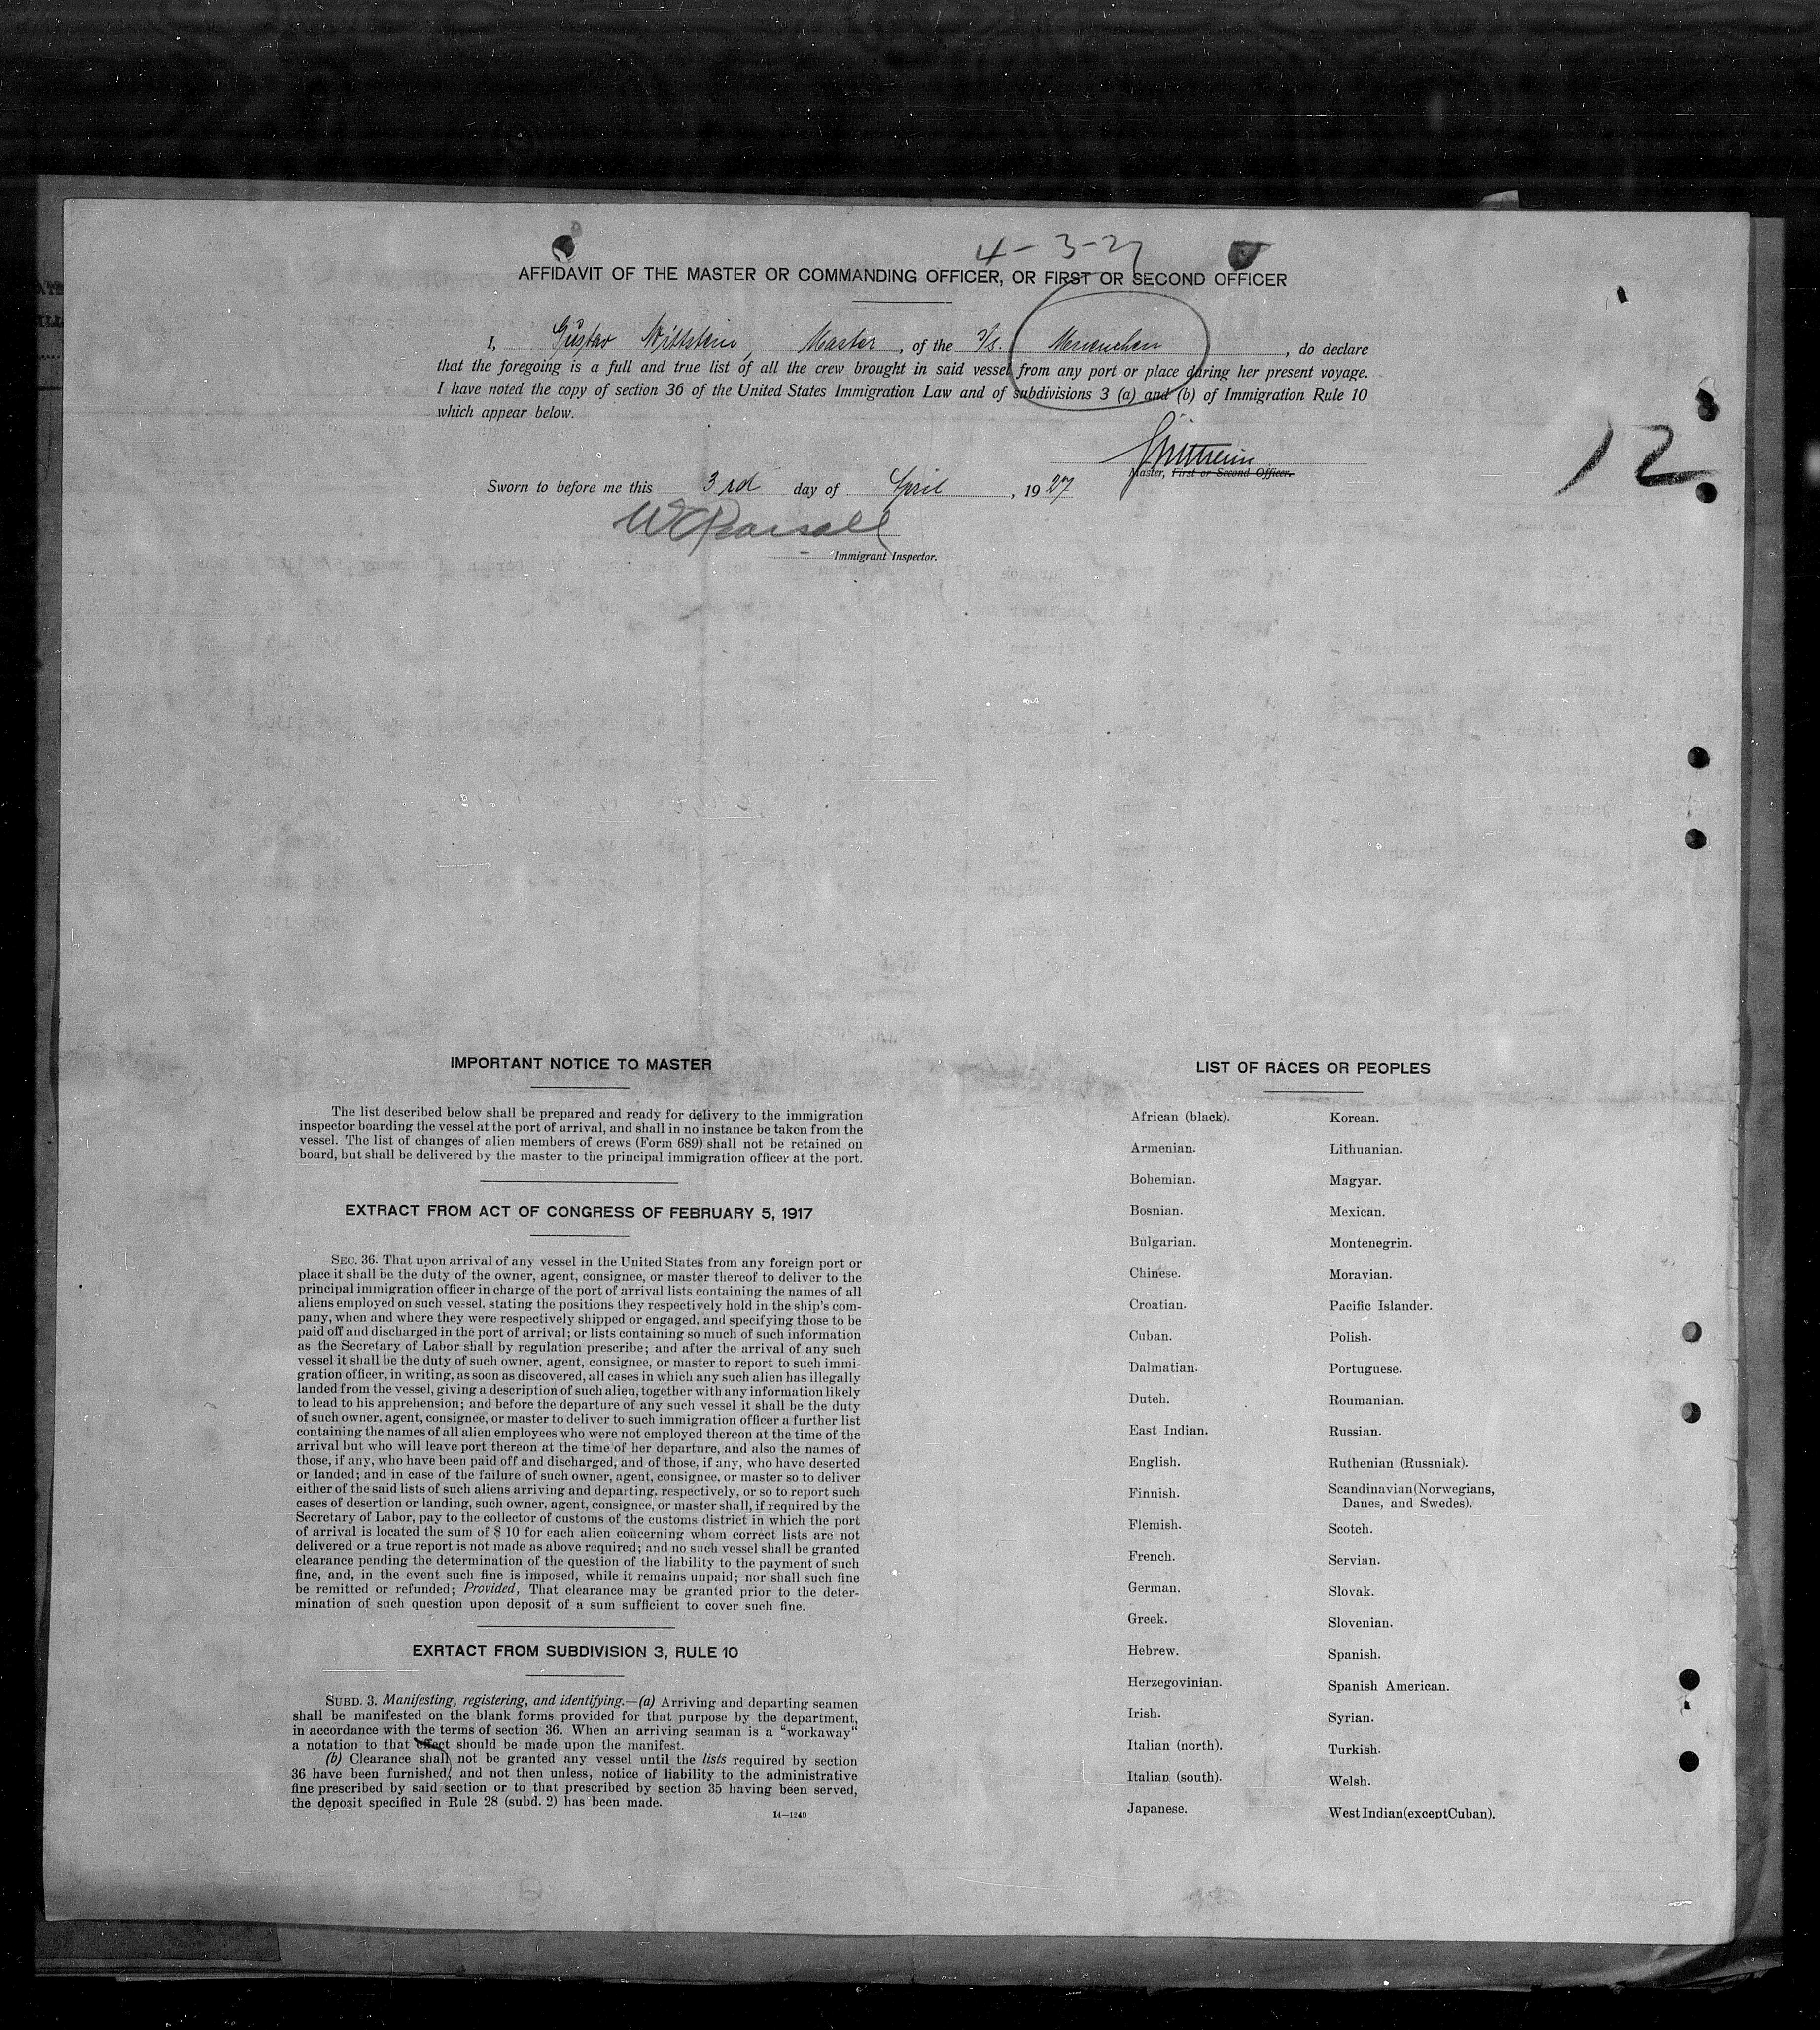 4-3-27
AFFIDAVIT OF THE MASTER OR COMMANDING OFFICER, OR FIRST OR SECOND OFFICER
I, Gustav Wittstein, Master, of the S/s. Muenchen, do declare
that the foregoing is a full and true list of all the crew brought in said vessel from any port or place during her present voyage.
I have noted the copy of section 36 of the United States Immigration Law and of subdivisions 3 (a) and (b) of Immigration Rule 10
which appear below.
GWittstein
Master, First or Second Officer.
12
Sworn to before me this 3rd day of April, 1927
WCPearsall
Immigrant Inspector.
IMPORTANT NOTICE TO MASTER
The list described below shall be prepared and ready for delivery to the immigration
inspector boarding the vessel at the port of arrival, and shall in no instance be taken from the
vessel. The list of changes of alien members of crews (Form 689) shall not be retained on
board, but shall be delivered by the master to the principal immigration officer at the port.
EXTRACT FROM ACT OF CONGRESS OF FEBRUARY 5, 1917
SEC. 36. That upon arrival of any vessel in the United States from any foreign port or
place it shall be the duty of the owner, agent, consignee, or master thereof to deliver to the
principal immigration officer in charge of the port of arrival lists containing the names of all
aliens employed on such vessel, stating the positions they respectively hold in the ship's com-
pany, when and where they were respectively shipped or engaged, and specifying those to be
paid off and discharged in the port of arrival; or lists containing so much of such information
as the Secretary of Labor shall by regulation prescribe; and after the arrival of any such
vessel it shall be the duty of such owner, agent, consignee, or master to report to such immi-
gration officer, in writing, as soon as discovered, all cases in which any such alien has illegally
landed from the vessel, giving a description of such alien, together with any information likely
to lead to his apprehension; and before the departure of any such vessel it shall be the duty
of such owner, agent, consignee, or master to deliver to such immigration officer a further list
containing the names of all alien employees who were not employed thereon at the time of the
arrival but who will leave port thereon at the time of her departure, and also the names of
those, if any, who have been paid off and discharged, and of those, if any, who have deserted
or landed; and in case of the failure of such owner, agent, consignee, or master so to deliver
either of the said lists of such aliens arriving and departing, respectively, or so to report such
cases of desertion or landing, such owner, agent, consignee, or master shall, if required by the
Secretary of Labor, pay to the collector of customs of the customs district in which the port
of arrival is located the sum of $ 10 for each alien concerning whom correct lists are not
delivered or a true report is not made as above required; and no such vessel shall be granted
clearance pending the determination of the question of the liability to the payment of such
fine, and, in the event such fine is imposed, while it remains unpaid; nor shall such fine
be remitted or refunded; Provided, That clearance may be granted prior to the deter-
mination of such question upon deposit of a sum sufficient to cover such fine.
EXRTACT FROM SUBDIVISION 3, RULE 10
SUBD. 3. Manifesting, registering, and identifying.—(a) Arriving and departing seamen
shall be manifested on the blank forms provided for that purpose by the department,
in accordance with the terms of section 36. When an arriving seaman is a "workaway"
a notation to that effect should be made upon the manifest.
(b) Clearance shall not be granted any vessel until the lists required by section
36 have been furnished, and not then unless, notice of liability to the administrative
fine prescribed by said section or to that prescribed by section 35 having been served,
the deposit specified in Rule 28 (subd. 2) has been made.
14—1240
LIST OF RACES OR PEOPLES
African (black).
Armenian.
Bohemian.
Bosnian.
Bulgarian.
Chinese.
Croatian.
Cuban.
Dalmatian.
Dutch.
East Indian.
English.
Finnish.
Flemish.
French.
German.
Greek.
Hebrew.
Herzegovinian.
Irish.
Italian (north).
Italian (south).
Japanese.
Korean.
Lithuanian.
Magyar.
Mexican.
Montenegrin.
Moravian.
Pacific Islander.
Polish.
Portuguese.
Roumanian.
Russian.
Ruthenian (Russniak).
Scandinavian (Norwegians,
Danes, and Swedes).
Scotch.
Servian.
Slovak.
Slovenian.
Spanish.
Spanish American.
Syrian.
Turkish.
Welsh.
West Indian (except Cuban).